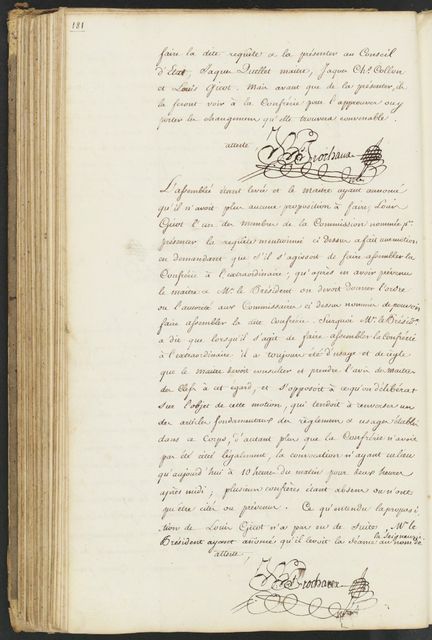 181
faire la dite requête & la présenter au Conseil
d'Etat, Jaques Quellet maitre, Jaques Ch.s Collon
et Louis Gicot. Mais avant que de la présenter, ils
la feront voir à la Confrérie pour l'approuver ou y
porter les changemens qu'elle trouvera convenable.
atteste
Brochaux
L'assemblée étant levée et le maitre ayant annoncé
qu'il n'avoit plus aucune proposition à faire, Louis
Gicot l'un des membres de la Commission nommée p.r
présenter la requête mentionnée ci dessus a fait une motion
en demandant que s'il s'agissoit de faire assembler la
Confrérie à l'extraordinaire; qu'après en avoir prévenu
le maitre & Mr. le Président on devoit donner l'ordre
ou l'autorité aux Commissaires ci dessus nommés de pouvoir
faire assembler la dite confrérie. Surquoi Mr. le Présid.t
a dit que lorsqu'il s'agit de faire assembler la Confrérie
à l'extraordinaire il a toujours été d'usage et de règle
que le maitre devoit consulter et prendre l'avis des maitres
des Clefs à cet égard, et s'opposoit à ce qu'on délibérat
sur l'objet de cette motion, qui tendoit à renverser un
des articles fondamentaux des règlemens & usages établis
dans ce Corps; d'autant plus que la Confrérie n'avoit
pas été citée légalement, la convocation n'ayant eu lieu
qu'aujourd'hui à 10 heures du matin pour deux heures
après midi; plusieurs confrères étant absens ou n'ont
pu être cités ou prévenus. Ce qu'entendu la proposi
tion de Louis Gicot n'a pas eu de suites, Mr. le
Président ayant annoncé qu'il levoit la séance au nom de
la Seigneurie
atteste,
Brochaux